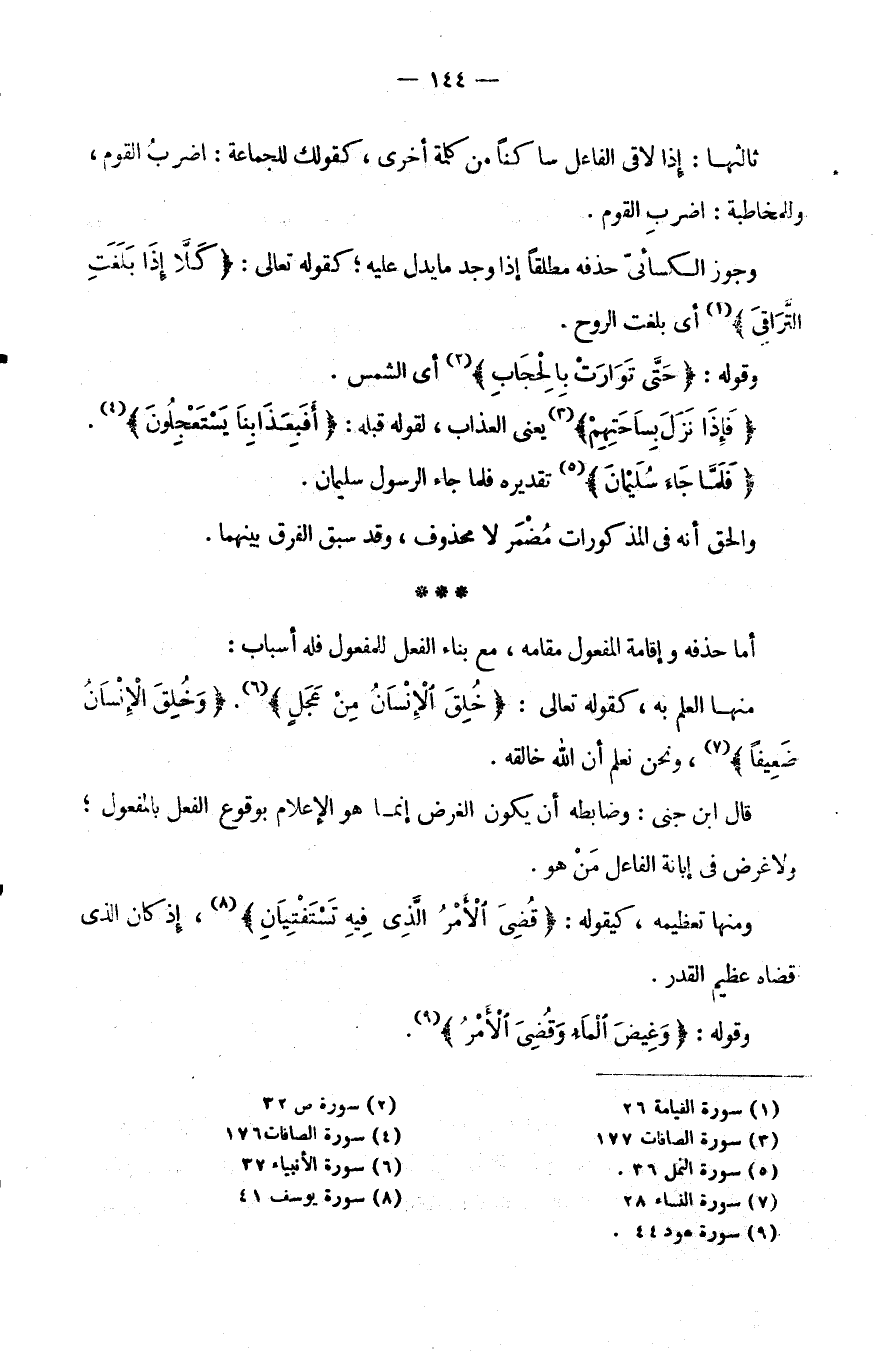 — ١٤٤ —
ثالثها : إذا لاقى الفاعل ساكناً من كلمة أخرى ، كقولك للجماعة : اضربُ القوم ،
وللمخاطبة : اضربِ القوم .
وجوز الكسائىّ حذفه مطلقاً إذا وجد مايدل عليه ؛ كقوله تعالى : ﴿ كَلَّا إِذَا بَلَغَتِ
التَّرَاقِىَ ﴾(١) أى بلغت الروح .
وقوله : ﴿ حَتَّى تَوَارَتْ بِالْحِجَابِ ﴾(٢) أى الشمس .
﴿ فَإِذَا نَزَلَ بِسَاحَتِهِمْ ﴾(٣) يعنى العذاب ، لقوله قبله : ﴿ أَفَبِعَذَابِنَا يَسْتَعْجِلُونَ ﴾(٤) .
﴿ فَلَمَّا جَاءَ سُلَيْمَانَ ﴾(٥) تقديره فلما جاء الرسول سليمان .
والحق أنه فى المذكورات مُضْمَر لا محذوف ، وقد سبق الفرق بينهما .
***
أما حذفه وإقامة المفعول مقامه ، مع بناء الفعل للمفعول فله أسباب :
منها العلم به ، كقوله تعالى : ﴿ خُلِقَ ٱلْإِنْسَانُ مِنْ عَجَلٍ ﴾(٦) . ﴿ وَخُلِقَ الْإِنْسَانُ
ضَعِيفاً ﴾(٧) ، ونحن نعلم أن الله خالقه .
قال ابن جنى : وضابطه أن يكون الغرض إنما هو الإعلام بوقوع الفعل بالمفعول ؛
ولاغرض فى إبانة الفاعل مَنْ هو .
ومنها تعظيمه ، كيقوله : ﴿ قُضِىَ ٱلْأَمْرُ الَّذِى فِيهِ تَسْتَفْتِيَانِ ﴾(٨) ، إذ كان الذى
قضاه عظيم القدر .
وقوله : ﴿ وَغِيضَ ٱلْمَاءُ وَقُضِىَ ٱلْأَمْرُ ﴾(٩) .
(١) سورة القيامة ٢٦
(٢) سورة ص ٣٢
(٣) سورة الصافات ١٧٧
(٤) سورة الصافات ١٧٦
(٥) سورة النمل ٣٦ .
(٦) سورة الأنبياء ٣٧
(٧) سورة النساء ٢٨
(٨) سورة يوسف ٤١
(٩) سورة هود ٤٤ .